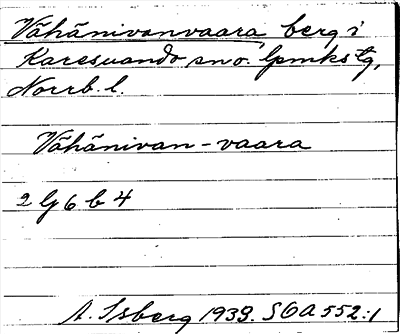 Vähänivanvaara, berg i
Karesuando sn o. lpmkstg,
Norrb. l.
Vähänivan-vaara
2 lj 6 b 4
A. Isberg 1939. SOA 552:1